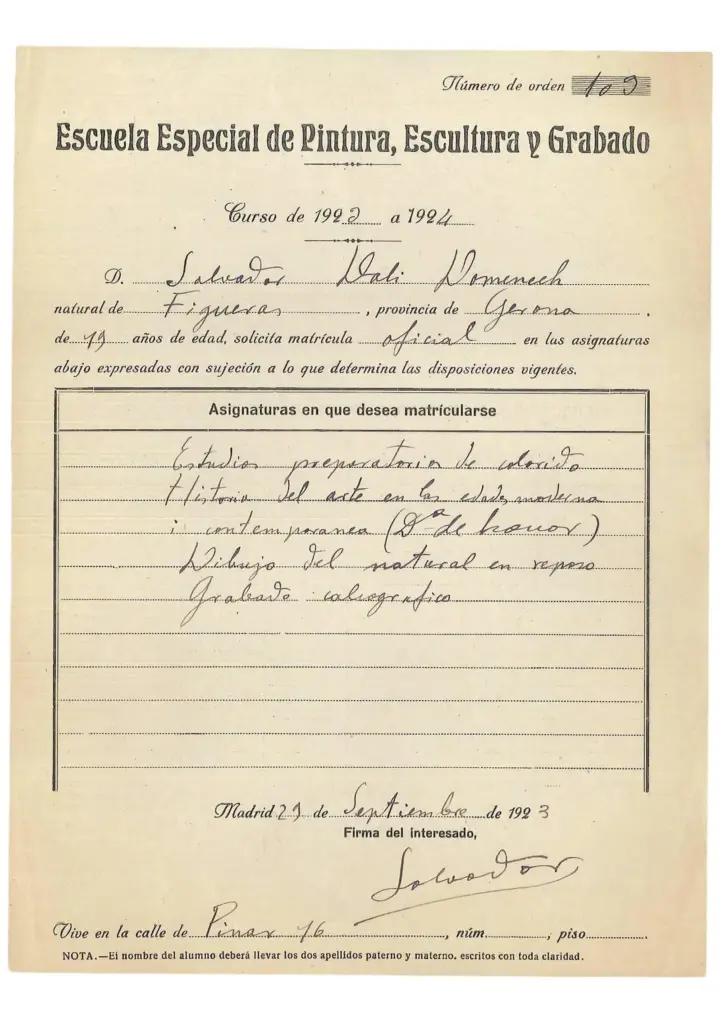 Número de orden 109
Escuela Especial de Pintura, Escultura y Grabado
Curso de 1923 a 1924
D. Salvador Dali Domenech
natural de Figueras, provincia de Gerona.
de 19 años de edad, solicita matrícula oficial en las asignaturas
abajo expresadas con sujeción a lo que determina las disposiciones vigentes.
Asignaturas en que desea matrícularse
Estudios preparatorios de colorido
Historia del arte en las edades moderna
i contemporanea (Dª de honor)
Dibujo del natural en reposo
Grabado calcografico
Madrid 29 de Septiembre de 1923
Firma del interesado,
Salvador
Vive en la calle de Pinar 16, núm., piso
NOTA.—El nombre del alumno deberá llevar los dos apellidos paterno y materno. escritos con toda claridad.